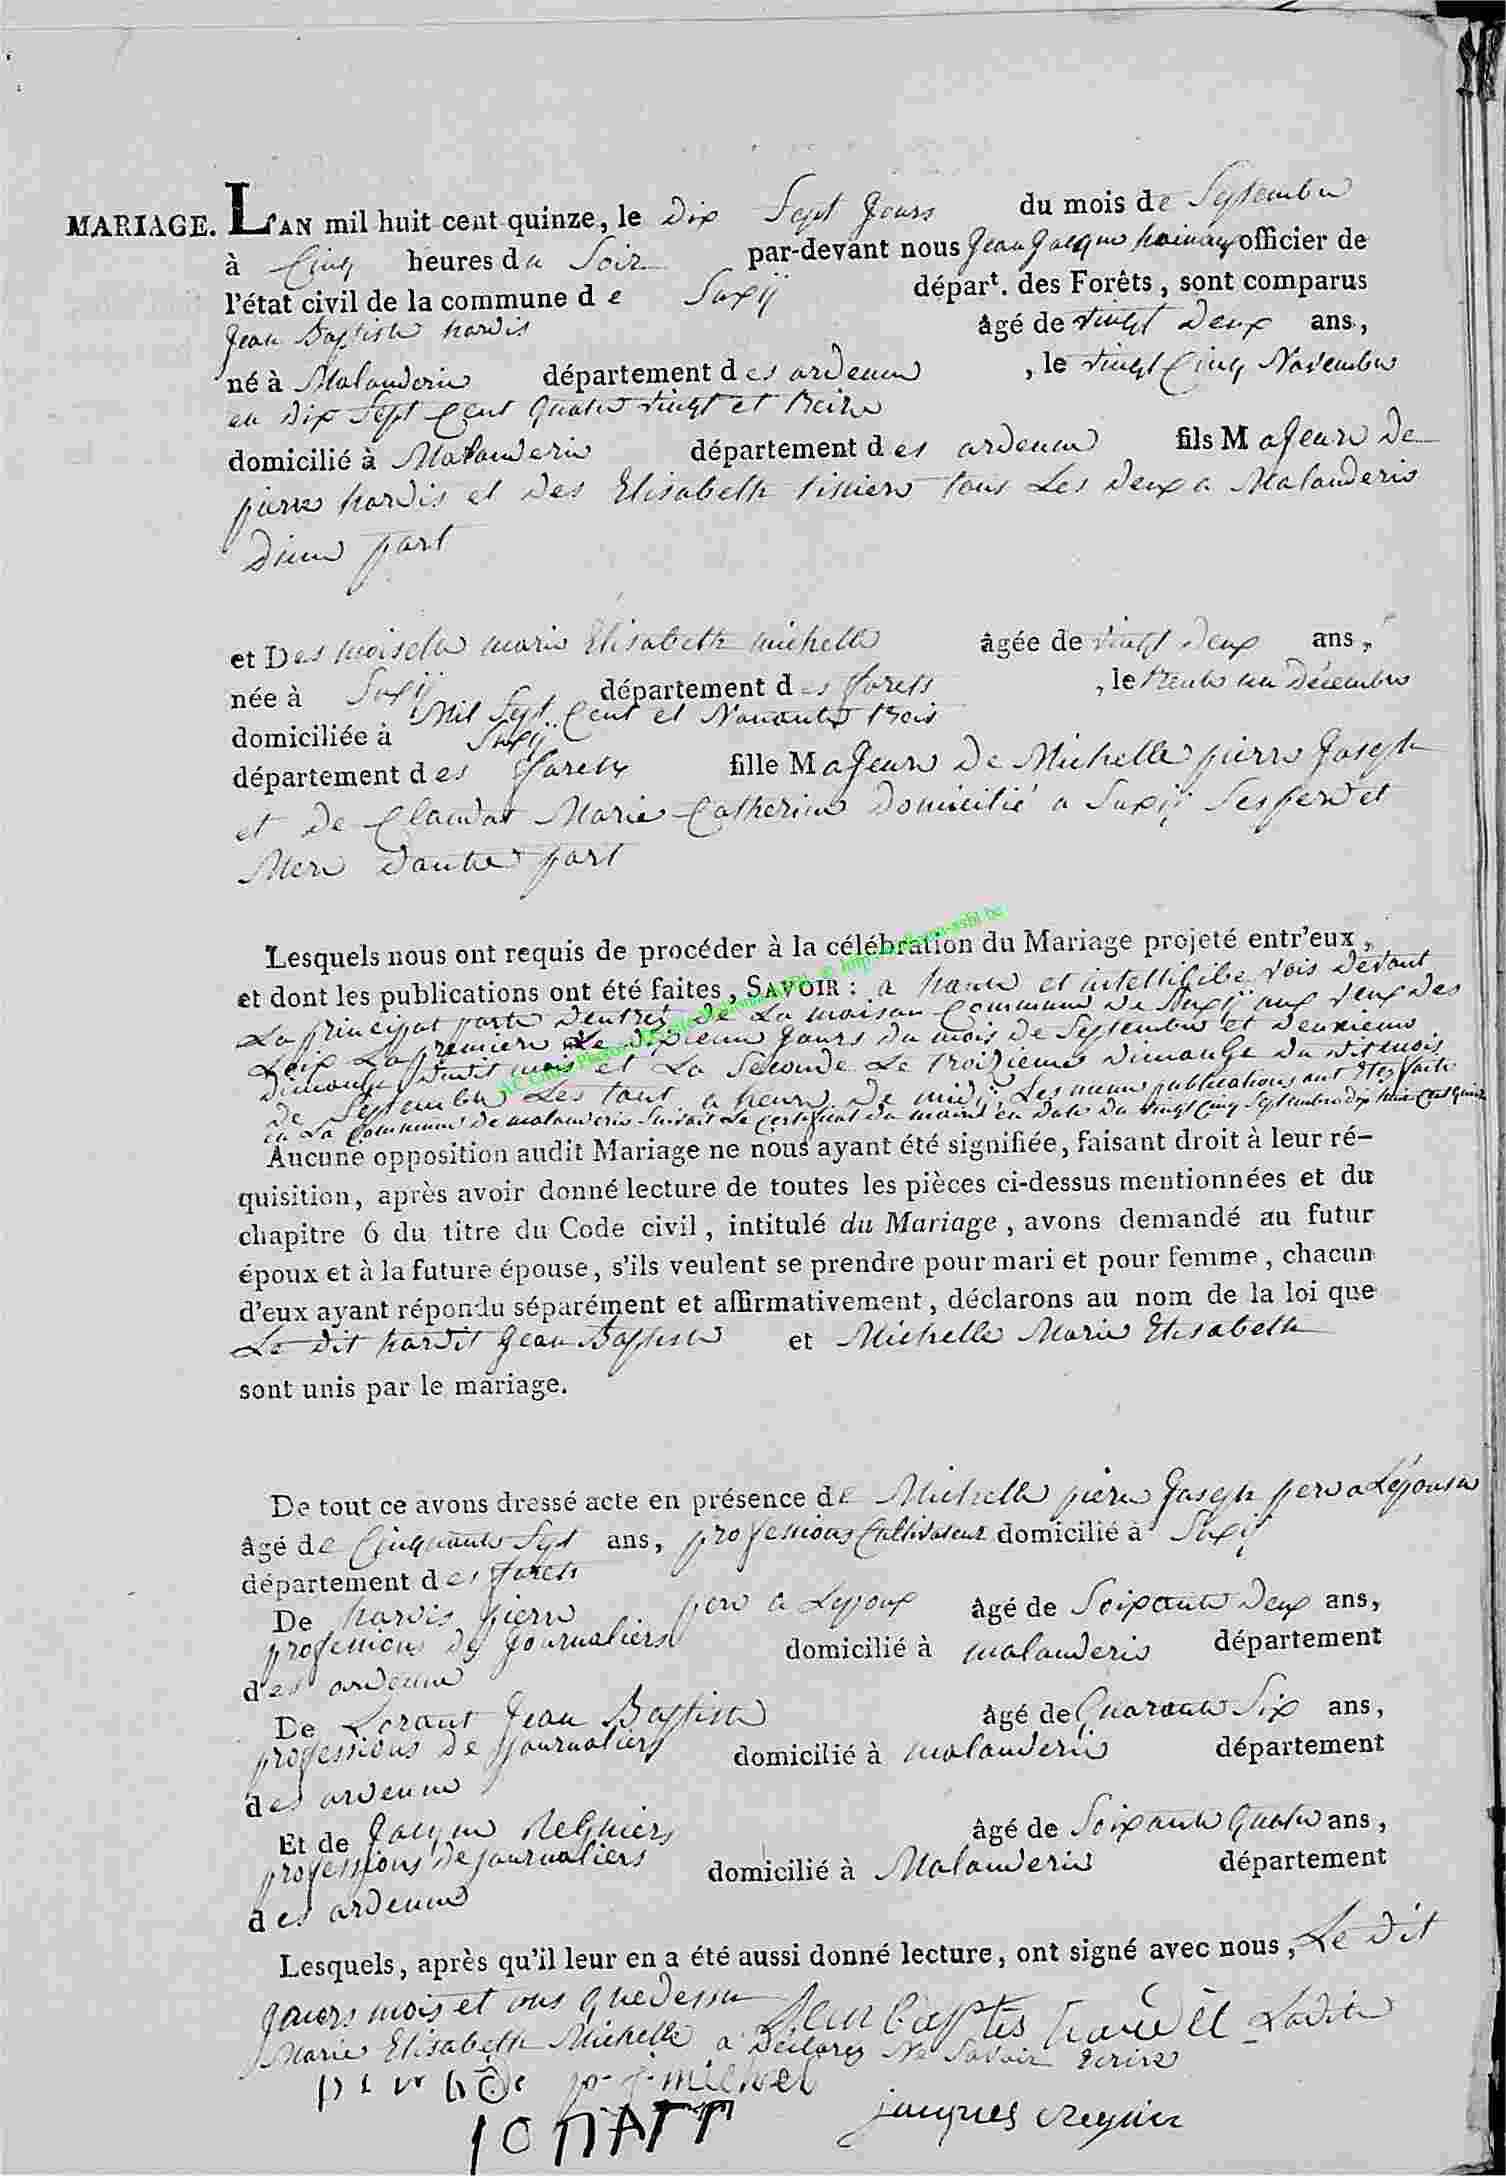 MARIAGE. L'AN mil huit cent quinze, le Dix Sept Jours du mois de Septembre
à Cinq heures du Soir par-devant nous Jean Jacque officier de
l'état civil de la commune de Suxÿ départ. des Forêts, sont comparus
Jean Baptiste hardis âgé de vingt Deux ans,
né à Malanderie département des ardenne, le vingt Cinq Novembre
en Dix Sept Cent quatre vingt et treize
domicilié à Malanderie département des ardenne fils Majeure De
pierre hardis et Des Elisabeth tous Les Deux a Malanderie
Dune part
et Des moiselle marie Elisabeth michelle âgée de vingt Deux ans,
née à Suxÿ département des forets, le trente un Décembre
Mil Sept Cent et Nonante trois
domiciliée à Suxÿ
département des forets fille Majeure De Michelle pierre Joseph
et De Claudot Marie Catherine Domicilié a Suxÿ Ses pere et
Mere Dautre part
Lesquels nous ont requis de procéder à la célébration du Mariage projeté entr'eux,
et dont les publications ont été faites, SAVOIR : a haute et intelligibe vois Devant
La principat porte Dentrée De La maison Commune De Suxÿ aux veux Des
Loix La premiere Le Dixieme Jours du mois De Septembre et Deuxieme
Dimanche Dudit mois et La Seconde Le troizieme Dimanche Du Ditmois
De Septembre Les tout a heure De midi Les meme publications ont Etez faite
en La Commune De malanderie Suivant Le Certificat Du maire en Date Du vingt Cinq Septembre Dix huit Cent Quinze
Aucune opposition audit Mariage ne nous ayant été signifiée, faisant droit à leur ré-
quisition, après avoir donné lecture de toutes les pièces ci-dessus mentionnées et du
chapitre 6 du titre du Code civil, intitulé du Mariage, avons demandé au futur
époux et à la future épouse, s'ils veulent se prendre pour mari et pour femme, chacun
d'eux ayant répondu séparément et affirmativement, déclarons au nom de la loi que
Le Dit hardit Jean Baptiste et Michelle Marie Elisabeth
sont unis par le mariage.
De tout ce avons dressé acte en présence de Michelle pierre Joseph pere a Lepouse
âgé de Cinquante Sept ans, professions Cultivateur domicilié à Suxÿ
département des forets
De hardis pierre pere a Lepoux âgé de Soixante Deux ans,
professions De Journaliers domicilié à malanderie département
des ardenne
De Lorant Jean Baptiste âgé de Quarante Six ans,
professions De Journaliers domicilié à malanderie département
des ardenne
Et de Jacque Regniers âgé de Soixante Quatre ans,
professions De journaliers domicilié à Malanderie département
des ardenne
Lesquels, après qu'il leur en a été aussi donné lecture, ont signé avec nous, Le Dit
Jours mois et ans queDessu Jean Baptes hardit Ladite
Marie Elisabeth Michelle a Déclarez Ne Savoir Ecrire
p. j. michel
jacques regnier